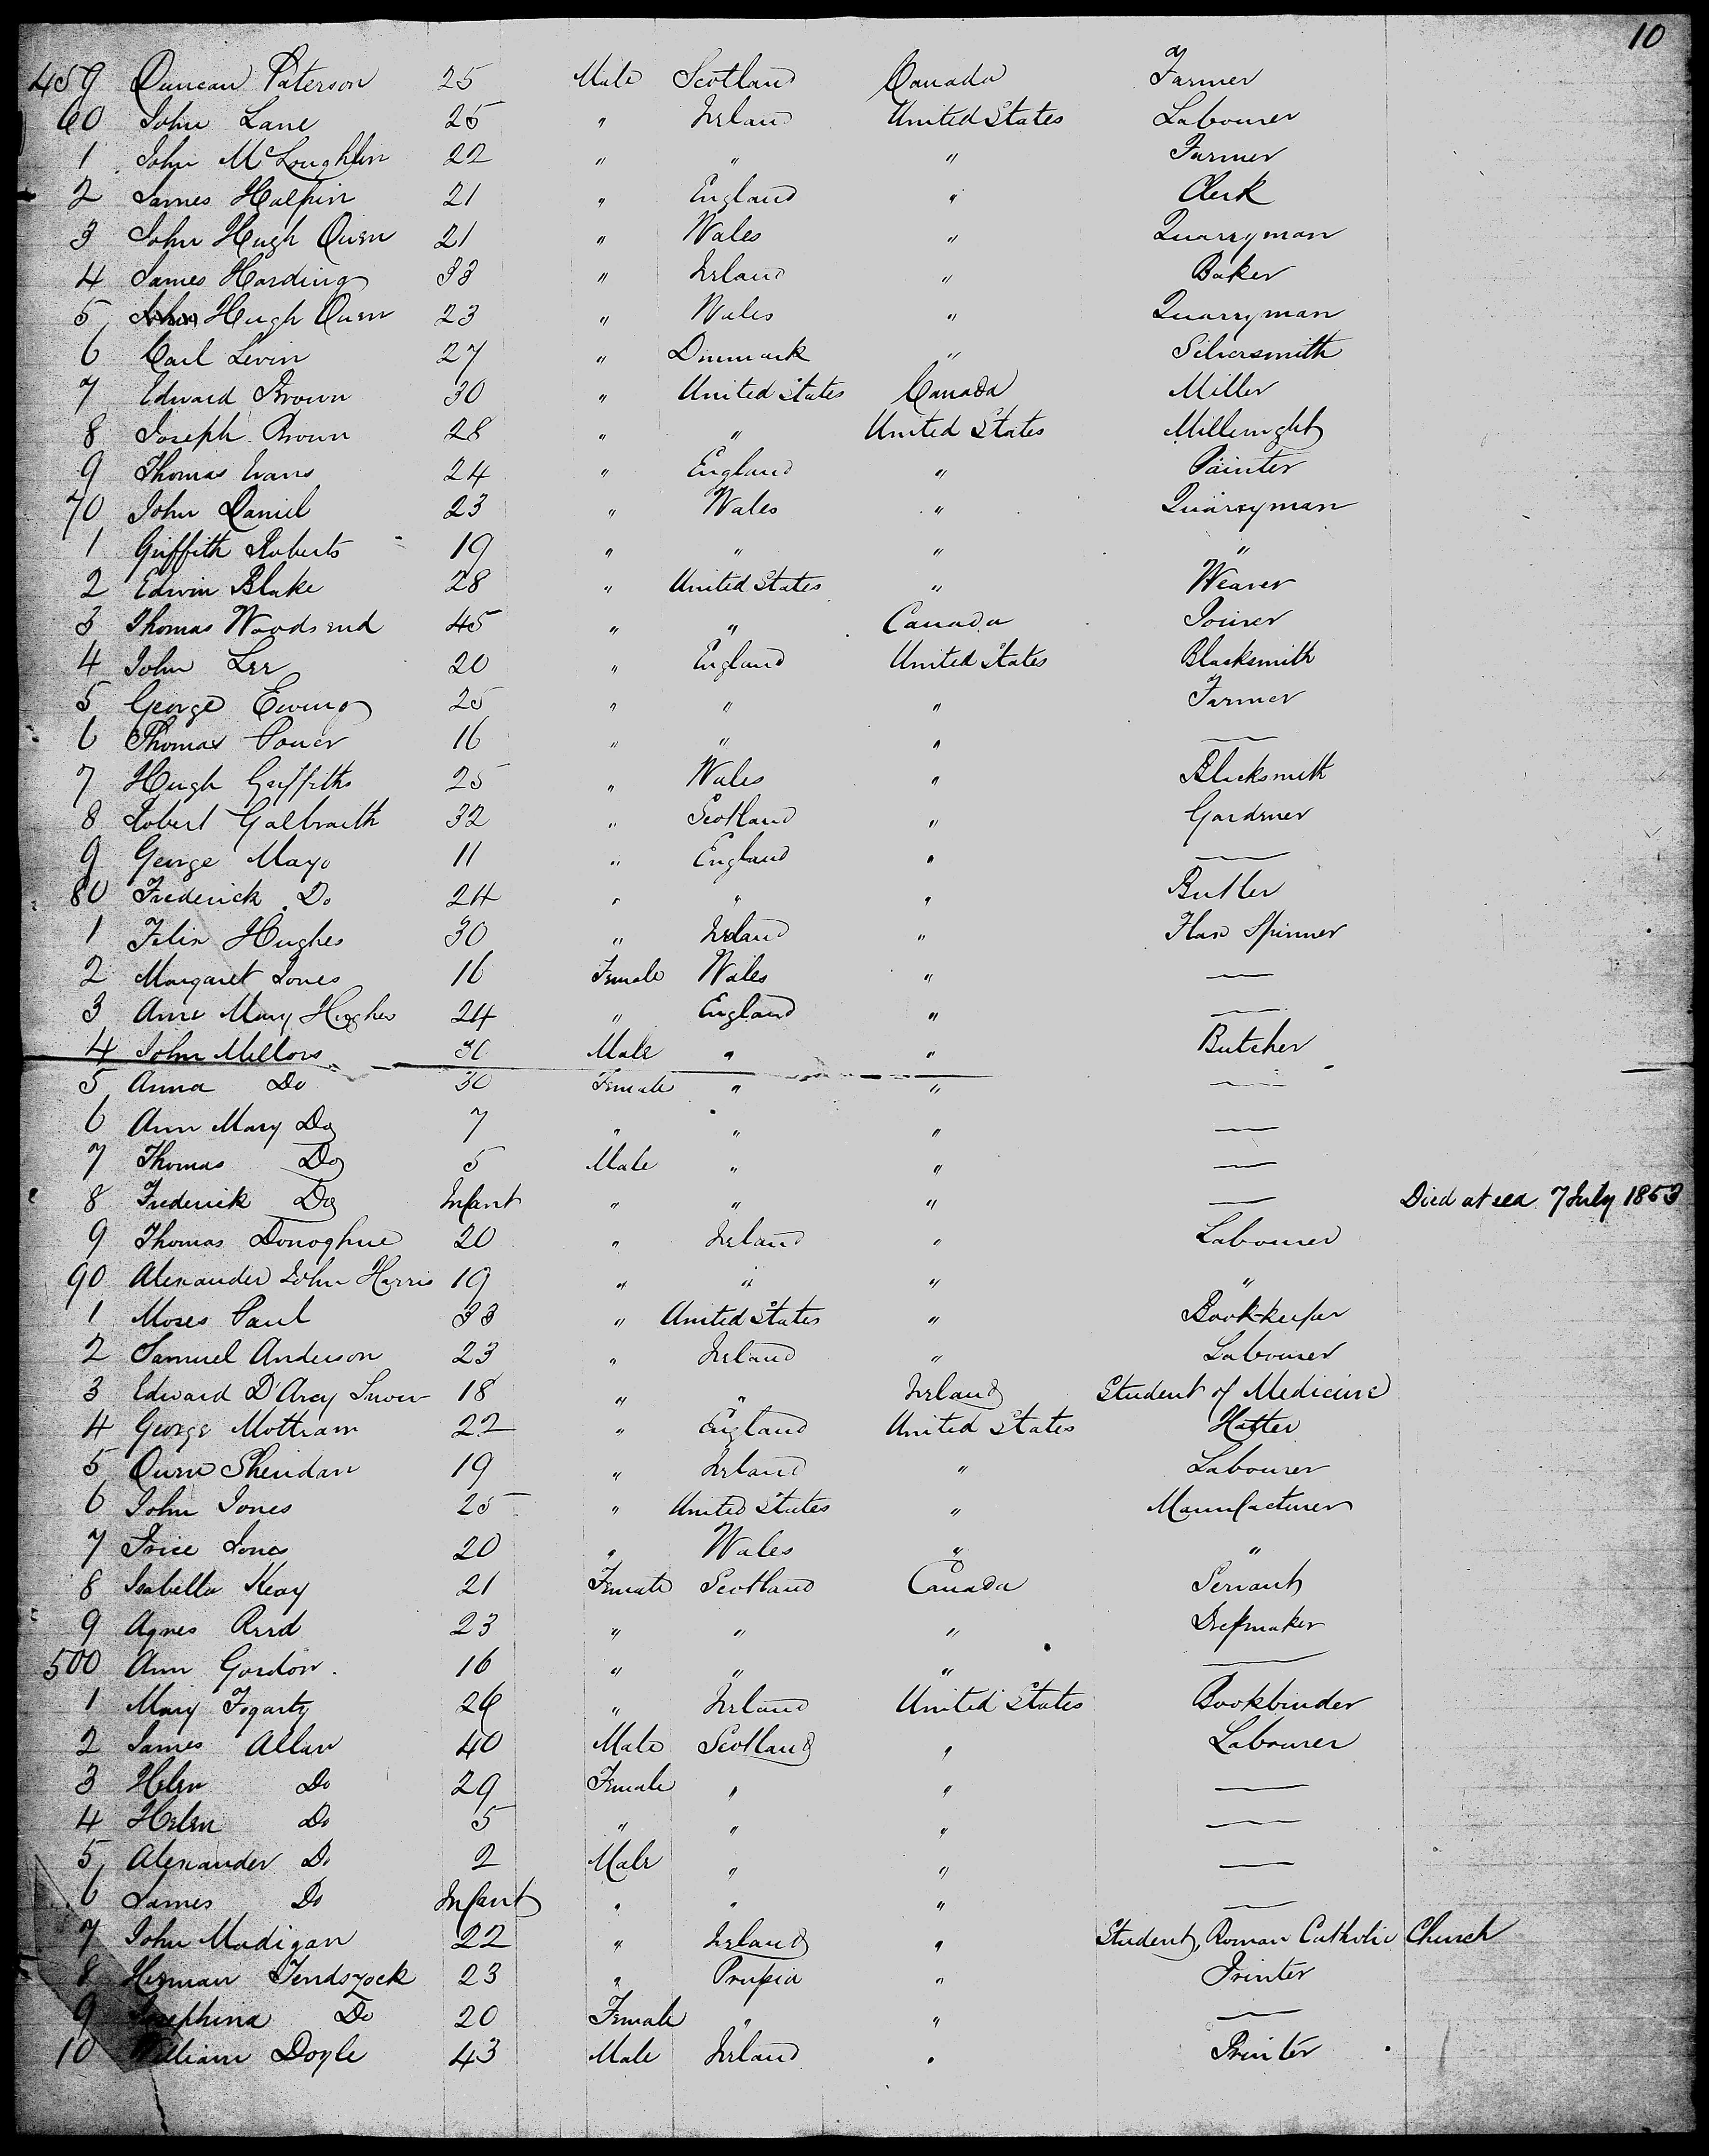 10
459 Duncan Paterson 25 Male Scotland Canada Farmer
60 John Lane 25 " Ireland United States Labourer
1 John McLoughlin 22 " " " Farmer
2 James Halpin 21 " England " Clerk
3 John Hugh Owen 21 " Wales " Quarryman
4 James Harding 33 " Ireland " Baker
5 Hugh Owen 23 " Wales " Quarryman
6 Carl Levin 27 " Denmark " Silversmith
7 Edward Brown 30 " United States Canada Miller
8 Joseph Brown 28 " " United States Millwright
9 Thomas Evans 24 " England " Painter
70 John Daniel 23 " Wales " Quarryman
1 Griffith Roberts 19 " " " "
2 Edwin Blake 28 " United States " Weaver
3 Thomas Woodsend 45 " " Canada Joiner
4 John Lee 20 " England United States Blacksmith
5 George Ewing 25 " " " Farmer
6 Thomas Power 16 " " " —
7 Hugh Griffiths 25 " Wales " Blacksmith
8 Robert Galbraith 32 " Scotland " Gardener
9 George Mayo 11 " England " —
80 Frederick Do 24 " " " Butler
1 Felix Hughes 30 " Ireland " Flax Spinner
2 Margaret Jones 16 Female Wales " —
3 Anne Mary Hughes 24 " England " —
4 John Mellors 30 Male " " Butcher
5 Anna Do 30 Female " " —
6 Ann Mary Do 7 " " " —
7 Thomas Do 5 Male " " —
8 Frederick Do Infant " " " — Died at sea 7 July 1853
9 Thomas Donoghue 20 " Ireland " Labourer
90 Alexander John Harris 19 " " " "
1 Moses Paul 33 " United States " Bookkeeper
2 Samuel Anderson 23 " Ireland " Labourer
3 Edward D'Arcy 18 " " Ireland Student of Medicine
4 George Mottram 22 " England United States Hatter
5 Owen Sheridan 19 " Ireland " Labourer
6 John Jones 25 " United States " Manufacturer
7 Price Jones 20 " Wales " "
8 Isabella Keay 21 Female Scotland Canada Servant
9 Agnes Reed 23 " " " Dressmaker
500 Ann Gordon 16 " " " —
1 Mary Fogarty 26 " Ireland United States Bookbinder
2 James Allan 40 Male Scotland " Labourer
3 Helen Do 29 Female " " —
4 Helen Do 5 " " " —
5 Alexander Do 2 Male " " —
6 James Do Infant " " " —
7 John Madigan 22 " Ireland " Student, Roman Catholic Church
8 Herman Tendszock 23 " Prussia " Printer
9 Josephina Do 20 Female " " —
10 William Doyle 43 Male Ireland " Printer